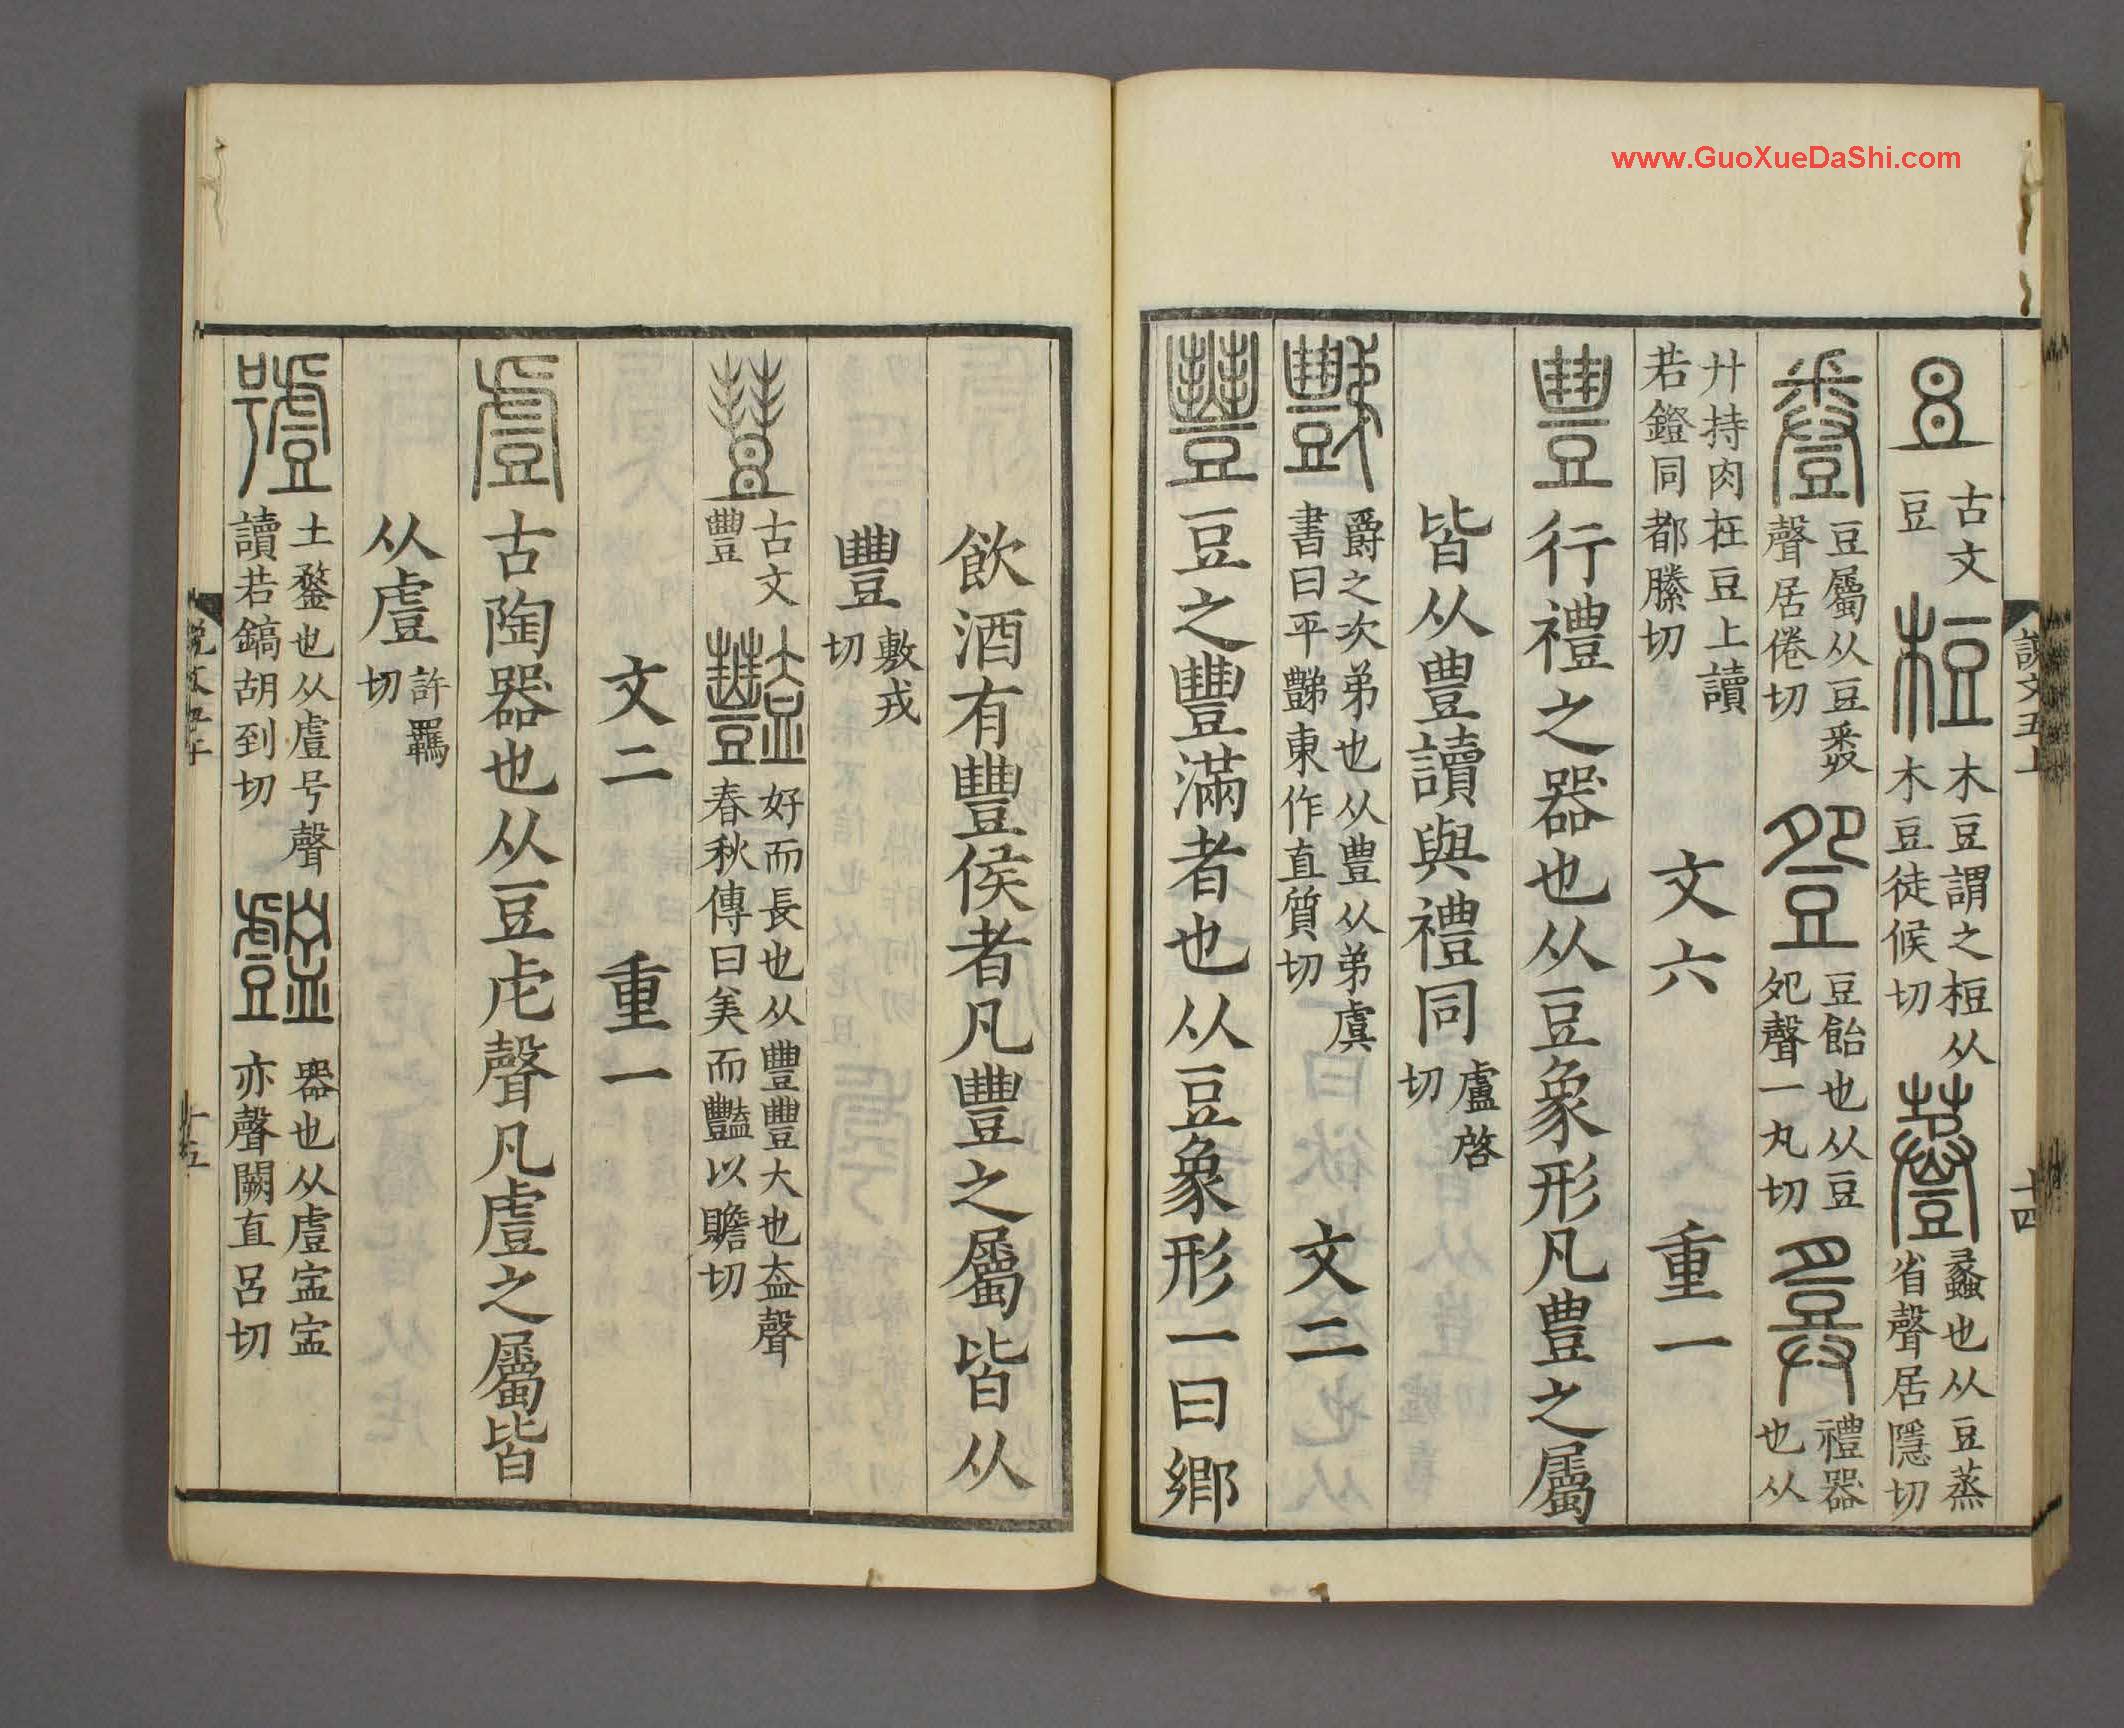 www.GuoXueDaShi.com
說文五上
十四
古文豆
木豆謂之梪从木豆徒候切
蠡也从豆蒸省聲居隱切
豆屬从豆𢍏聲居倦切
豆飴也从豆夗聲一丸切
禮器也从
廾持肉在豆上讀若鐙同都滕切
文六 重一
豐行禮之器也从豆象形凡豊之屬
皆从豊讀與禮同盧啓切
爵之次弟也从豊从弟虞書曰平豑東作直質切 文二
豐豆之豐滿者也从豆象形一曰鄉
飲酒有豐侯者凡豐之屬皆从
豐敷戎切
古文豐
好而長也从豐豐大也盇聲春秋傳曰美而豔以贍切
文二 重一
䖒古陶器也从豆虍聲凡䖒之屬皆
从䖒許羈切
土鍪也从䖒号聲讀若鎬胡到切
器也从䖒𥁂𥁂亦聲闕直呂切
十五